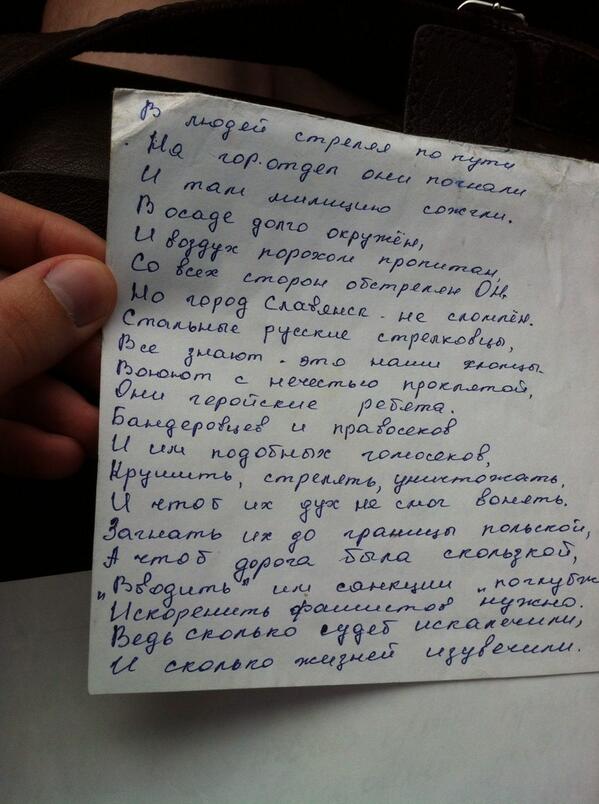 В людей стреляя по пути
На гор.отдел они погнали
И там милицию сожгли.
В осаде долго окружён,
И воздух порохом пропитан,
Со всех сторон обстрелян ОН,
Но город Славянск - не сломлен.
Стальные русские стрелковцы,
Все знают - это наши хлопцы.
Воюют с нечестью проклятой,
Они геройские ребята.
Бандеровцев и правосеков
И им подобных гомосеков,
Крушить, стрелять, уничтожать,
И чтоб их дух не смог вонять.
Загнать их до границы польской,
А чтоб дорога была скользкой,
"Вводить" им санкции "поглубж
Искоренить фашистов нужно.
Ведь сколько судеб искалечили,
И сколько жизней изувечили.